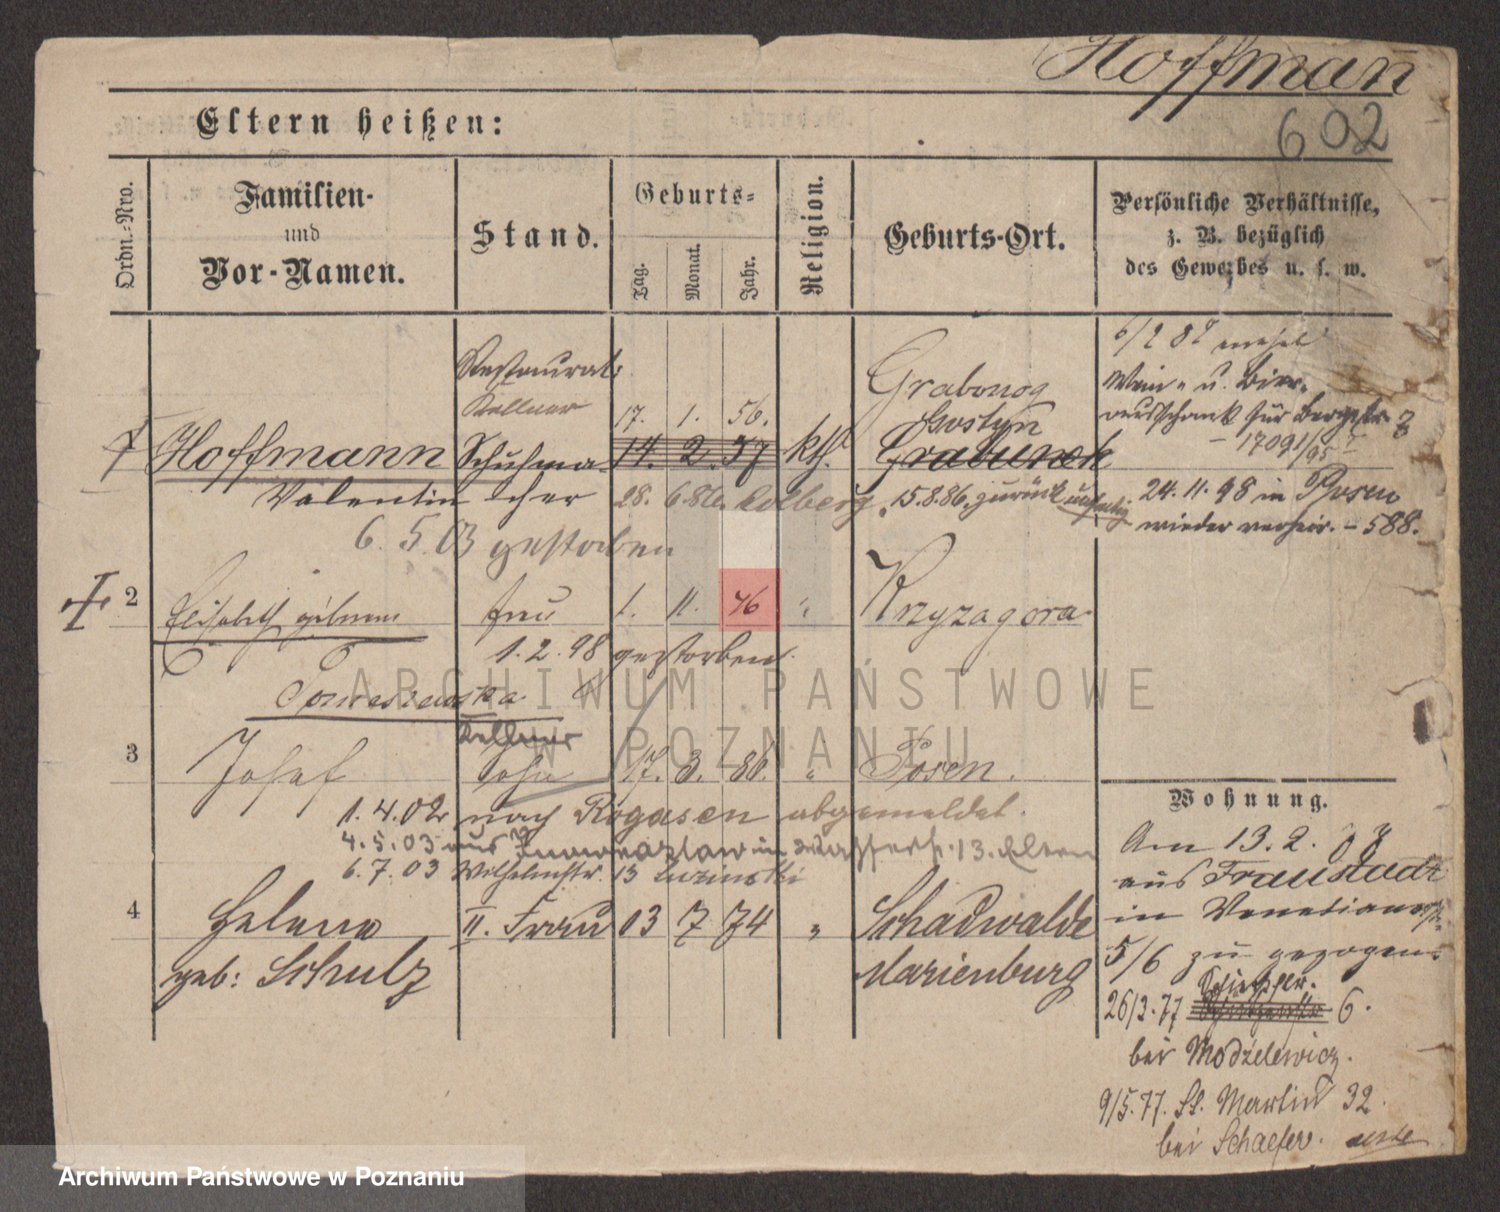 Hoffman
602
Eltern heißen:
Ordn.-Nro.
Familien-
und
Vor-Namen.
Stand.
Geburts-
Tag.
Monat.
Jahr.
Religion.
Geburts-Ort.
Persönliche Verhältnisse,
z. B. bezüglich
des Gewerbes u. s. w.
Restaurat.
Kellner
Hoffmann Schuhma
Valentin cher
17. 1. 56.
14. 2. 57 kth.
Grabonog
Gostyn
Grabunek
Wein- u. Bier-
ausschank für Bergstr. 7
- 17091/95
28. 6.86. Kolberg, 15.8.86. zurück
24. 11. 98 in Posen
wieder verheir. - 588.
6. 5. 03 gestorben
2 Elisabeth geborene frau 1. 11. 46 " Krzyzagora
1. 2. 98 gestorben.
Tomaszewska
Kellner
3 Josef Sohn 17. 3. 80. " Posen.
1. 4. 02 nach Rogasen abgemeldet.
4. 5. 03 aus Inowrazlaw in Wasserstr. 13. Eltern
6. 7. 03 Wilhelmstr. 13
4 Helene II. Frau 03 7 74 " Schadwalde
geb: Schulz Marienburg
Wohnung.
Am 13. 2.
aus Fraustadt
in Venetianerstr.
5/6 zu gezogen.
26/3. 77 6.
bei Modzelewicz.
9/5. 77. St. Martin 32.
bei Schaefer.
ARCHIWUM PAŃSTWOWE
W POZNANIU
Archiwum Państwowe w Poznaniu